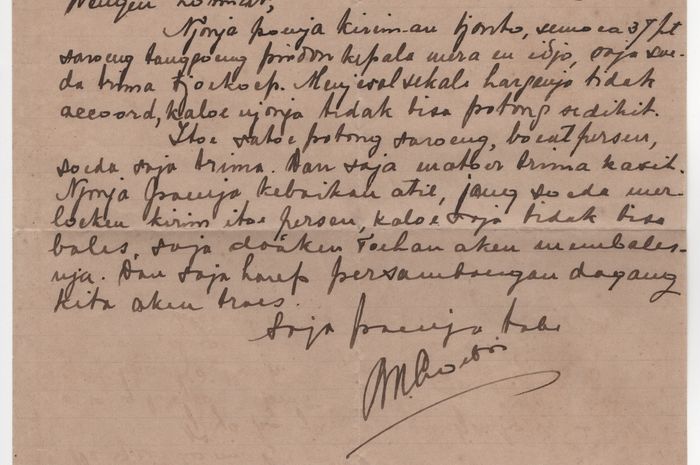 Dengen hormat,
Njonja poenja kirim-an tjonto, semoea 37 st
saroeng tanggoeng pindon kepala mera en idjo, saja soe-
da trima tjoekoep. Menjesal sekali harganja tidak
accoord, kaloe njonja tidak bisa potong sedikit.
Itoe satoe potong saroeng, boeat persen,
soeda saja trima. Dan saja matoer trima kasih.
Njonja poenja kebaikan atie, jang soeda mer-
loeken kirim itoe persen, kaloe saja tidak bisa
bales, saja doäken Toehan aken membales-
nja. Dan saja harep persamboengan dagang
kita aken troes.
Saja poenja tabe